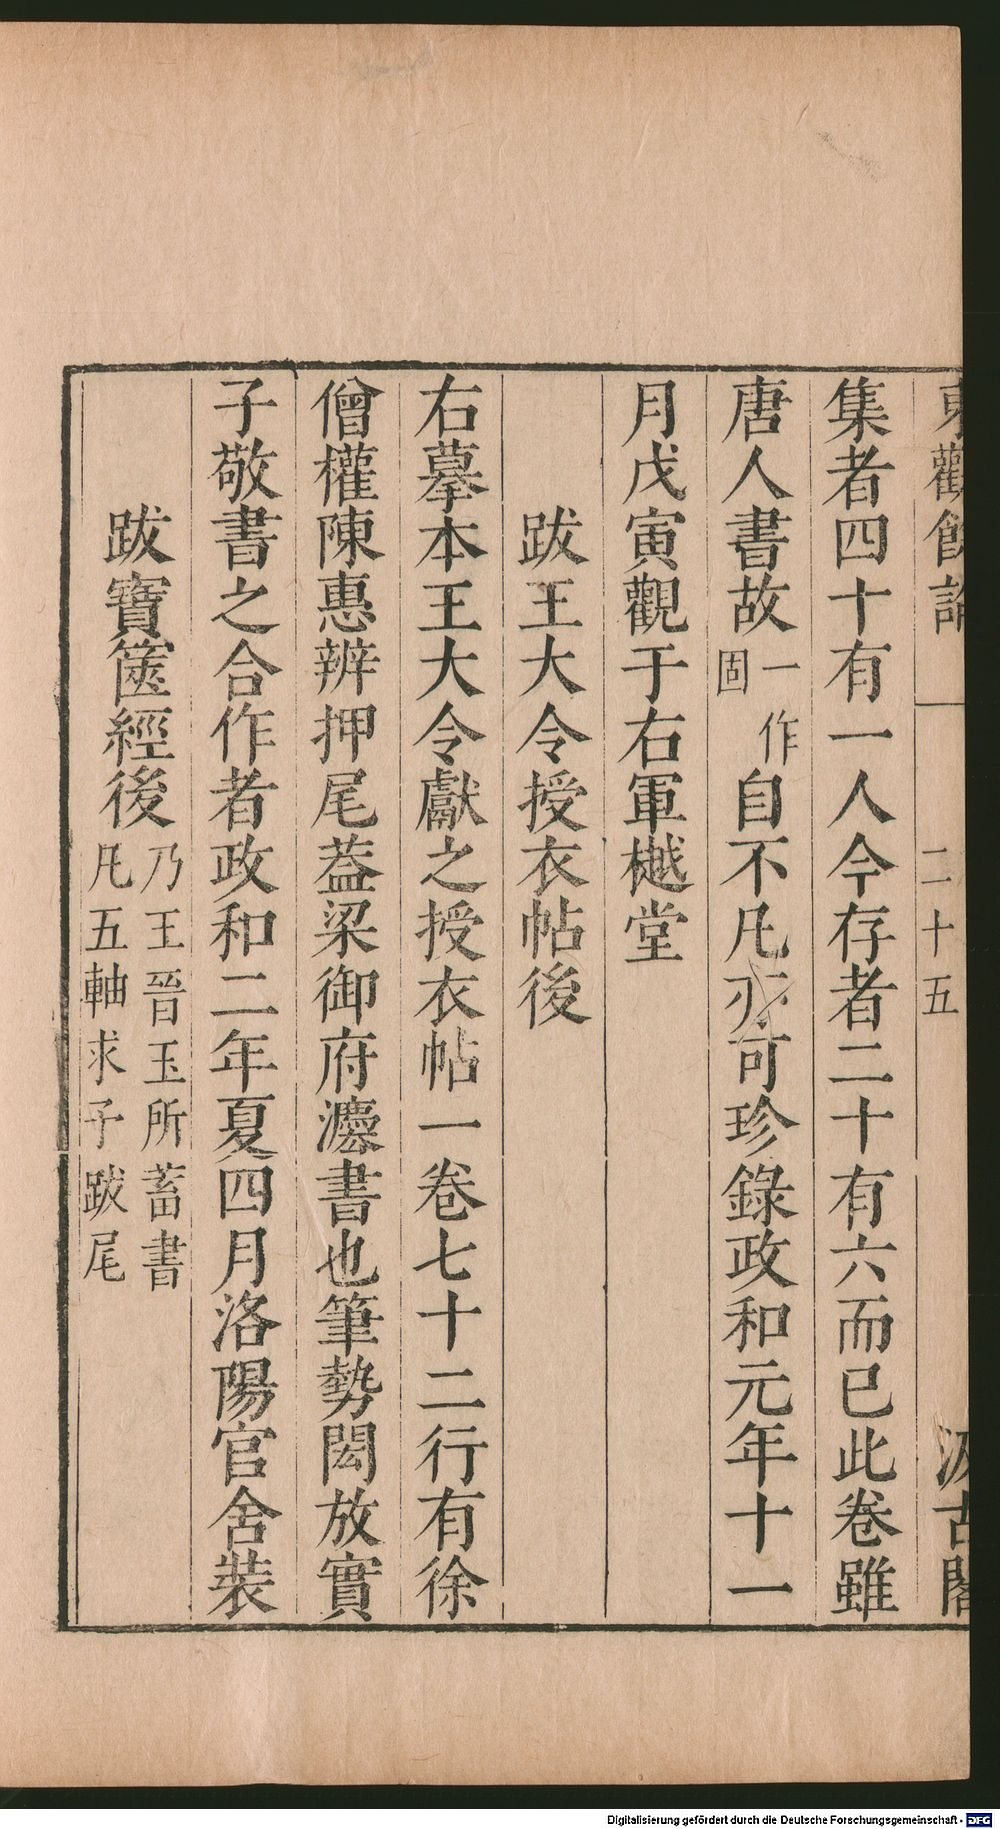 東觀餘論 二十五 汲古閣
集者四十有一人今存者二十有六而已此卷雖
唐人書故一作固自不凡亦可珍錄政和元年十一
月戊寅觀于右軍樾堂
跋王大令授衣帖後
右摹本王大令獻之授衣帖一卷七十二行有徐
僧權陳惠辨押尾葢梁御府灋書也筆勢閎放實
子敬書之合作者政和二年夏四月洛陽官舍裝
跋寶篋經後乃王晉玉所蓄書
凡五軸求子跋尾
Digitalisierung gefördert durch die Deutsche Forschungsgemeinschaft - DFG